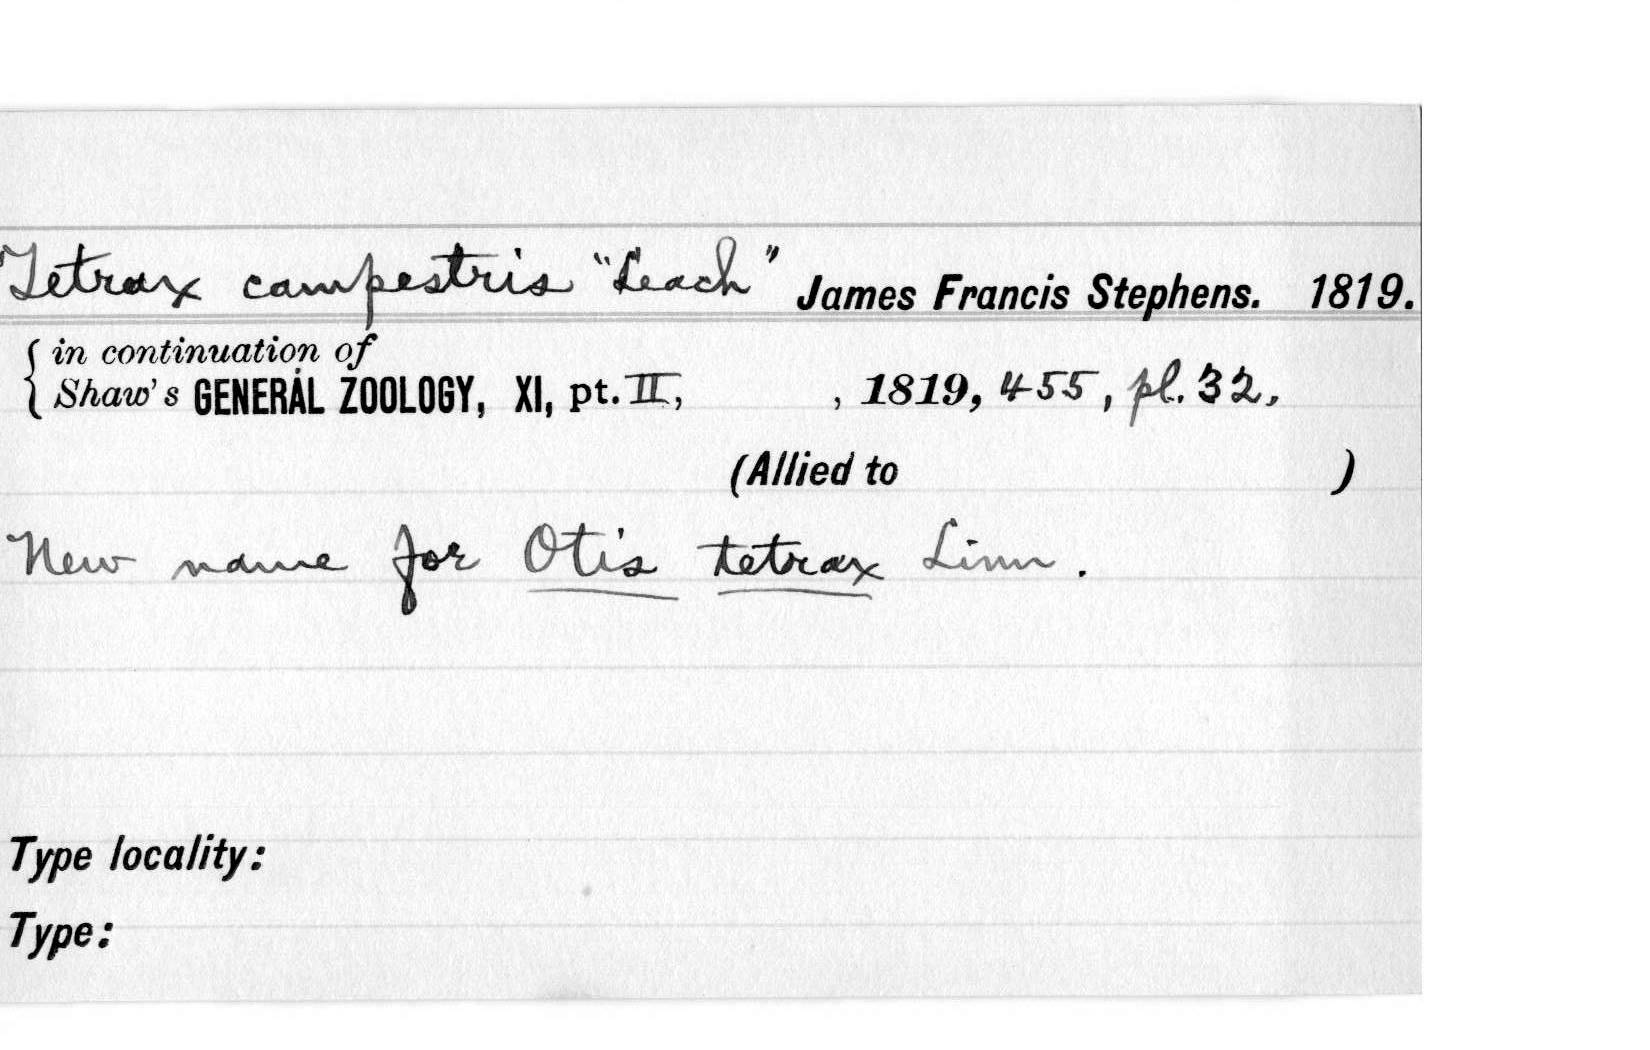 Tetrax campestris "Leach" James Francis Stephens. 1819.
in continuation of
Shaw's GENERAL ZOOLOGY, XI, pt. II, , 1819, 455, pl. 32,
(Allied to )
New name for Otis tetrax Linn.
Type locality:
Type: